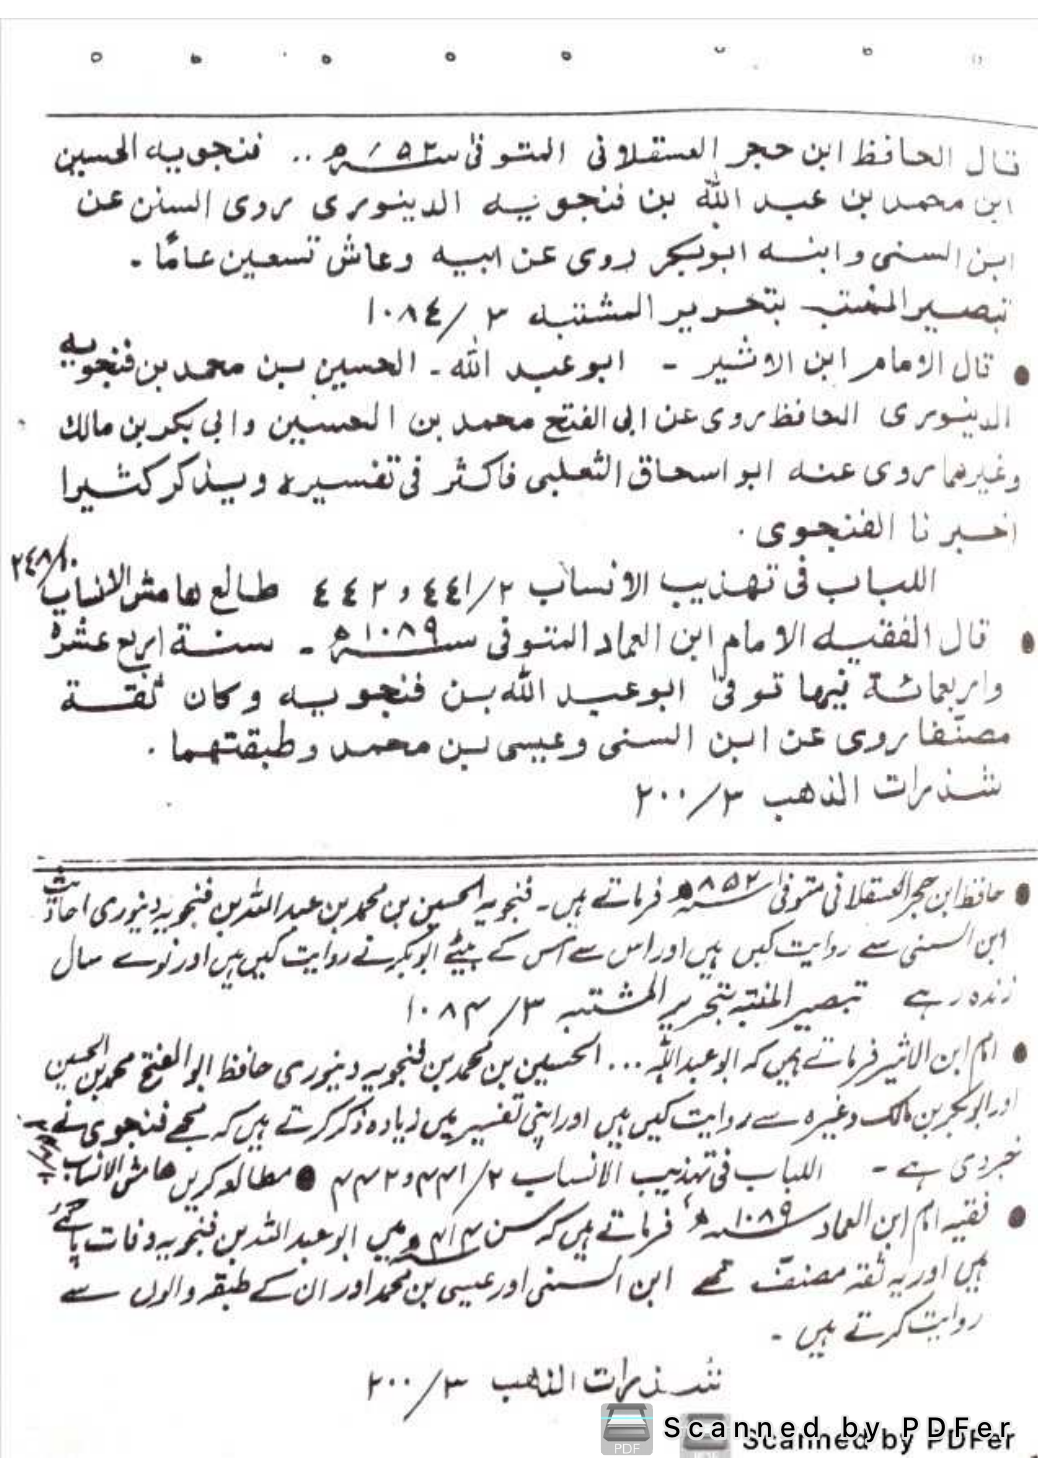 قال الحافظ ابن حجر العسقلانی المتوفیٰ سنہ ٨٥٢ھ .. فنجویہ الحسین
ابن محمد بن عبد اللہ بن فنجویہ الدینوری روی السنن عن
ابن السنی وابنہ ابوبکر روی عن ابیہ وعاش تسعین عامًا ۔
تبصیر المنتبہ بتحریر المشتبہ ٣/١٠٨٤
● قال الامام ابن الاثیر - ابو عبد اللہ - الحسین بن محمد بن فنجویہ
الدینوری الحافظ روی عن ابی الفتح محمد بن الحسین وابی بکر بن مالک
وغیرهما روی عنہ ابو اسحاق الثعلبی فاکثر فی تفسیرہ ویذکر کثیرا
اخبرنا الفنجوی ۔
اللباب فی تہذیب الانساب ٢/٤٤١ و ٤٤٢ طالع هامش الانساب ١٠/٢٤٨
● قال الفقیہ الامام ابن العماد المتوفی سنہ ١٠٨٩ھ - سنة اربع عشرة
واربعمائة فیها توفیٰ ابو عبد اللہ بن فنجویہ وکان ثقة
مصنّفا روی عن ابن السنی وعیسی بن محمد وطبقتهما ۔
شذرات الذهب ٣/٢٠٠
● حافظ ابن حجر العسقلانی متوفیٰ سنہ ٨٥٢ھ فرماتے ہیں۔ فنجویہ الحسین بن محمد بن عبد اللہ بن فنجویہ دینوری احادیث
ابن السنی سے روایت کیں ہیں اور اس سے اُس کے بیٹے ابوبکر نے روایت کیں ہیں اور نوے سال
زندہ رہے تبصیر المنتبہ بتحریر المشتبہ ٣/١٠٨۴
● امام ابن الاثیر فرماتے ہیں کہ ابو عبد اللہ ... الحسین بن محمد بن فنجویہ دینوری حافظ ابو الفتح محمد بن الحسین
اور ابوبکر بن مالک وغیرہ سے روایت کیں ہیں اور اپنی تفسیر میں زیادہ ذکر کرتے ہیں کہ مجھے فنجوی نے
خبر دی ہے - اللباب فی تہذیب الانساب ٢/۴۴١ و ۴۴٢ ● مطالعہ کریں هامش الانساب
● فقیہ امام ابن العماد سنہ ١٠٨٩ھ فرماتے ہیں کہ سن ۴١۴ھ میں ابو عبد اللہ بن فنجویہ وفات پا گئے
ہیں اور یہ ثقہ مصنف تھے ابن السنی اور عیسی بن محمد اور ان کے طبقہ والوں سے
روایت کرتے ہیں ۔
شذرات الذهب ٣/٢٠٠
Scanned by PDFer
Scanned by PDFer
PDF